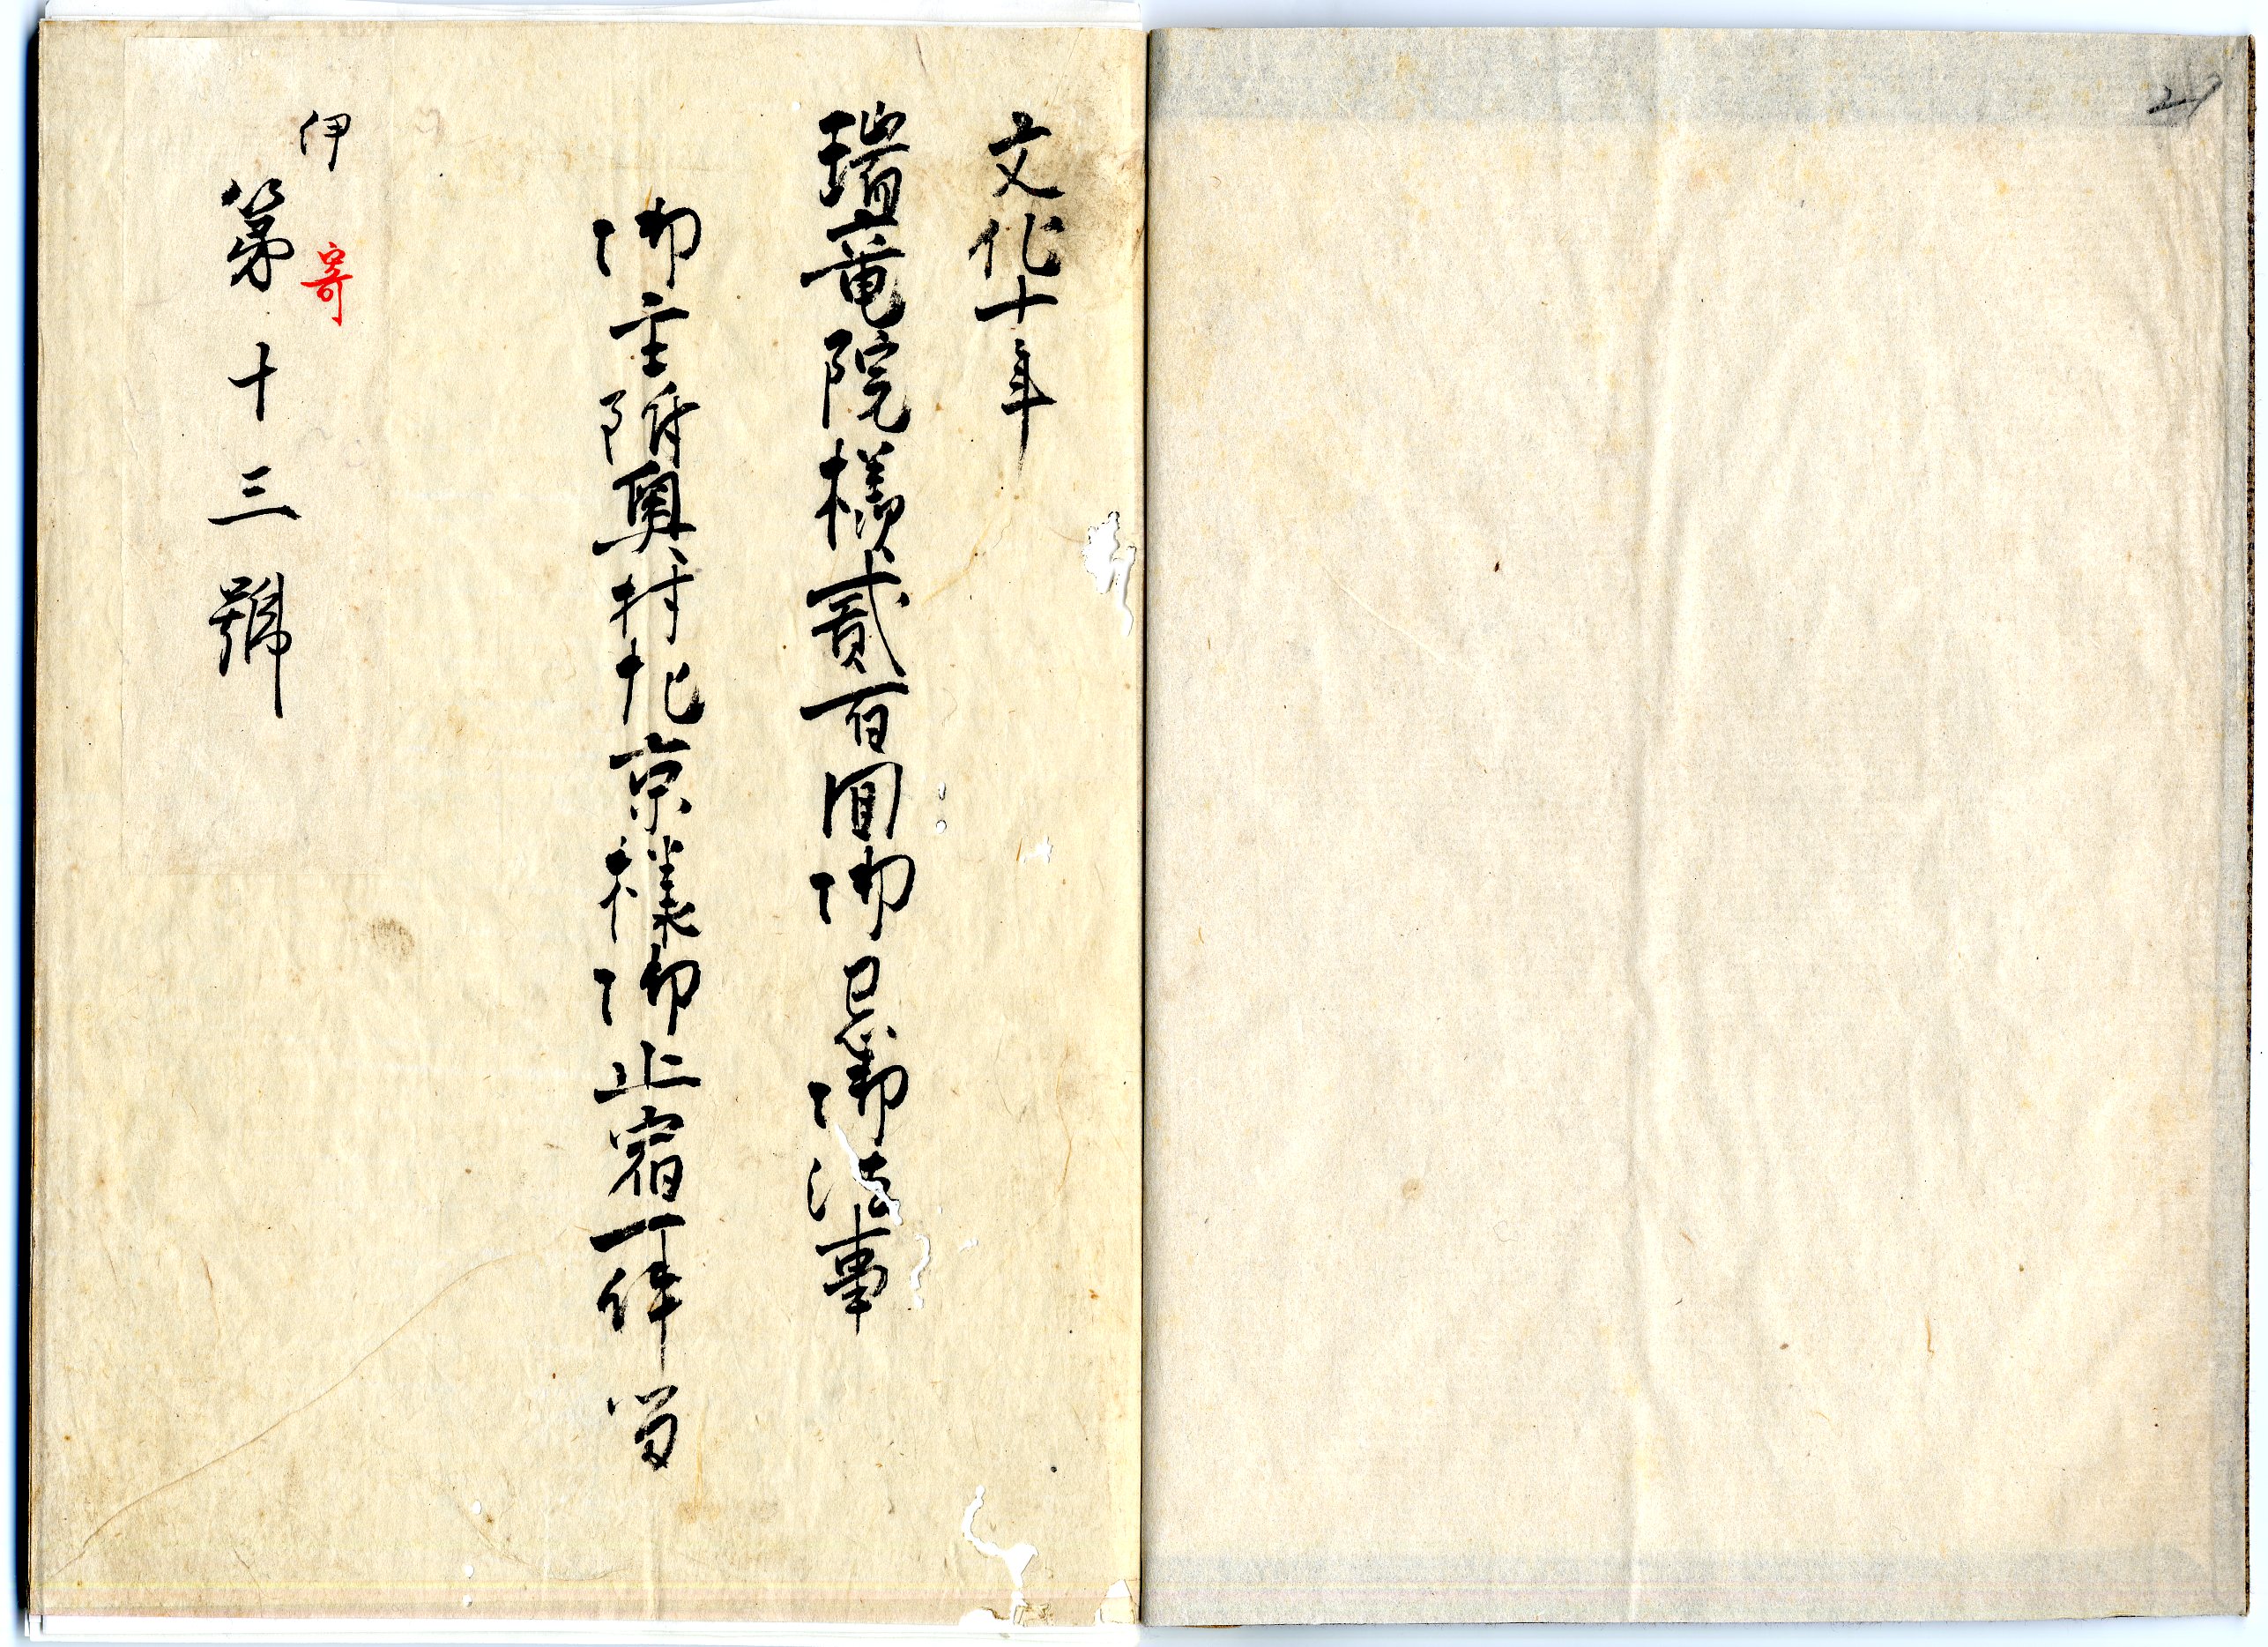 文化十年
瑞竜院様貳百回御忌御法事
御主附奥村左京様御止宿一件留
伊
寄
第十三號